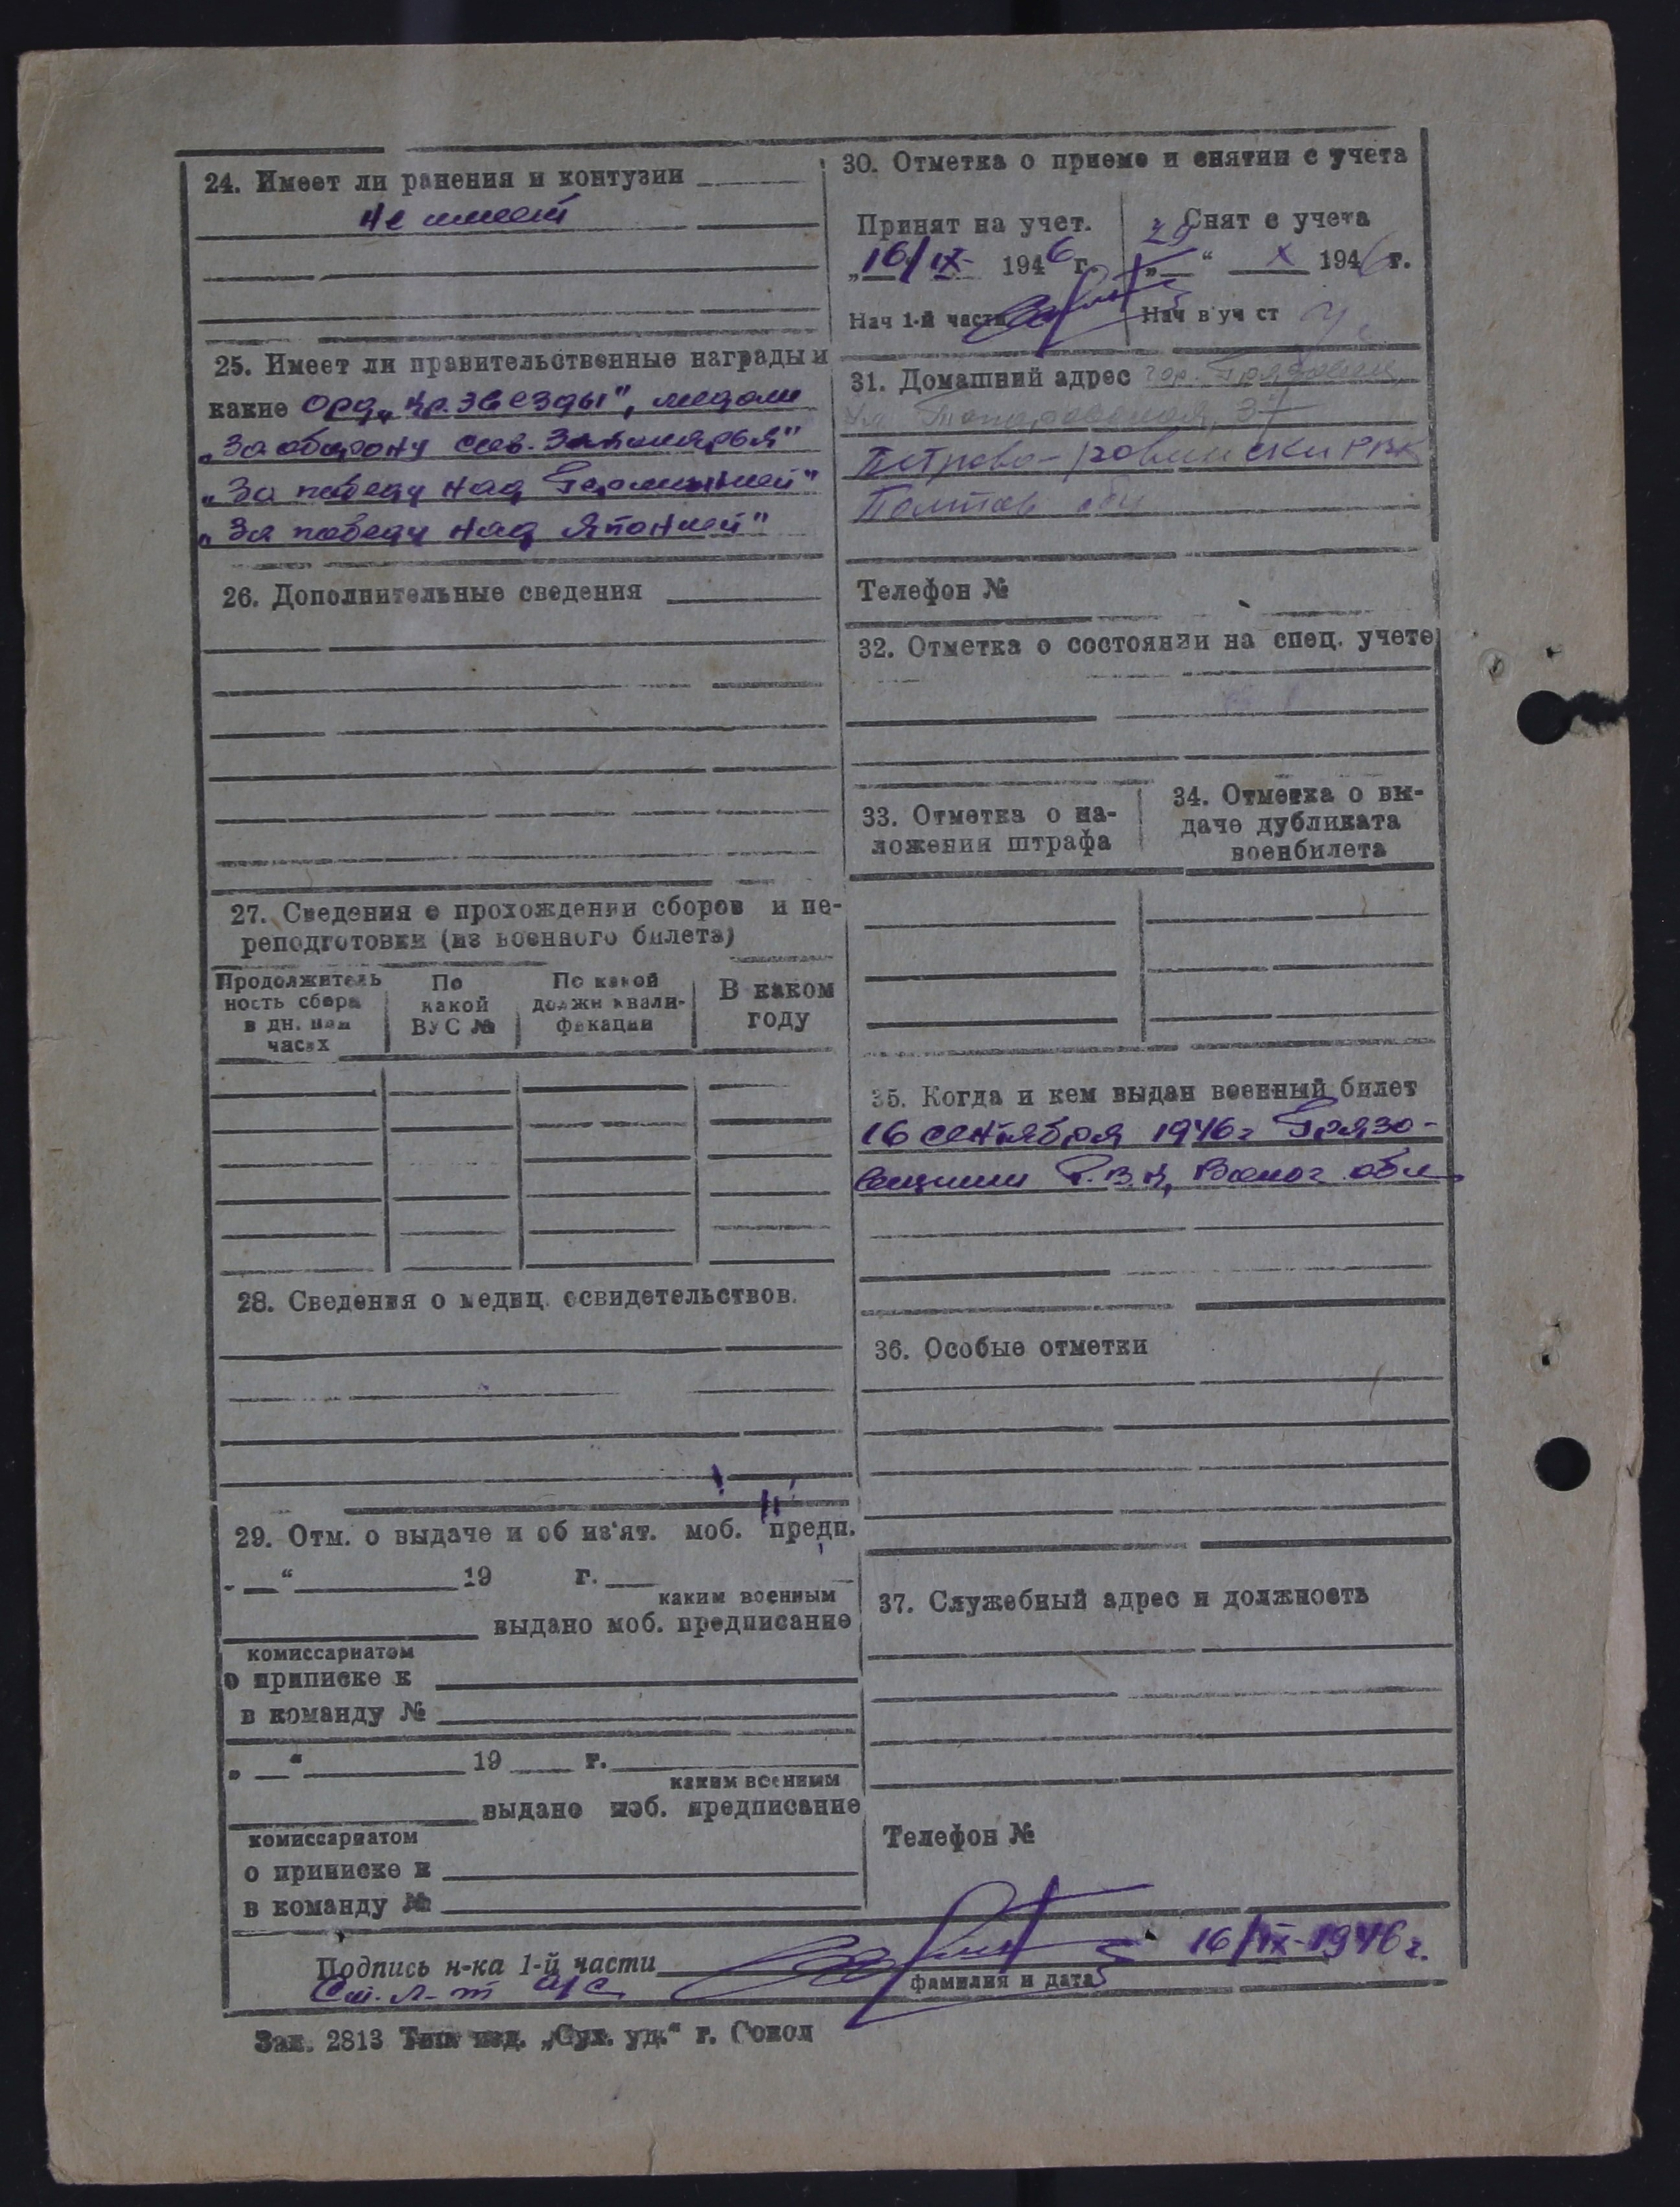 24. Имеет ли ранения и контузии
не имеет
25. Имеет ли правительственные награды и
какие Орд. „Кр. Звезды", медали
„За оборону Сов. Заполярья"
„За победу над Германией"
„За победу над Японией"
26. Дополнительные сведения
27. Сведения о прохождении сборов и пе-
реподготовки (из военного билета)
Продолжитель
ность сбора
в дн. или
часах
По
какой
ВУС №
По какой
должн квали-
фикации
В каком
году
28. Сведения о медиц. освидетельствов.
29. Отм. о выдаче и об из'ят. моб. предп.
„ “ 19 г.
каким военным
выдано моб. предписание
комиссариатом
о приписке к
в команду №
„ “ 19 г.
каким военным
выдано моб. предписание
комиссариатом
о приписке к
в команду №
30. Отметка о приеме и снятии с учета
Принят на учет.
„16/IX 1946 г.
Нач 1-й части
Снят с учета
„29“ X 1946 г.
Нач в уч ст
31. Домашний адрес гор. Грязовец
ул. 37
Петрово- РВК
Полтав обл
Телефон №
32. Отметка о состоянии на спец. учете
33. Отметка о на-
ложении штрафа
34. Отметка о вы-
даче дубликата
военбилета
35. Когда и кем выдан военный билет
16 сентября 1946 г Грязо-
вецким Р.В.К, Волог. обл
36. Особые отметки
37. Служебный адрес и должность
Телефон №
Подпись н-ка 1-й части
16/IX-1946 г.
Ст. л-т а/с
фамилия и дата
Зак. 2813 Тип изд. „Сух. уд.“ г. Сокол